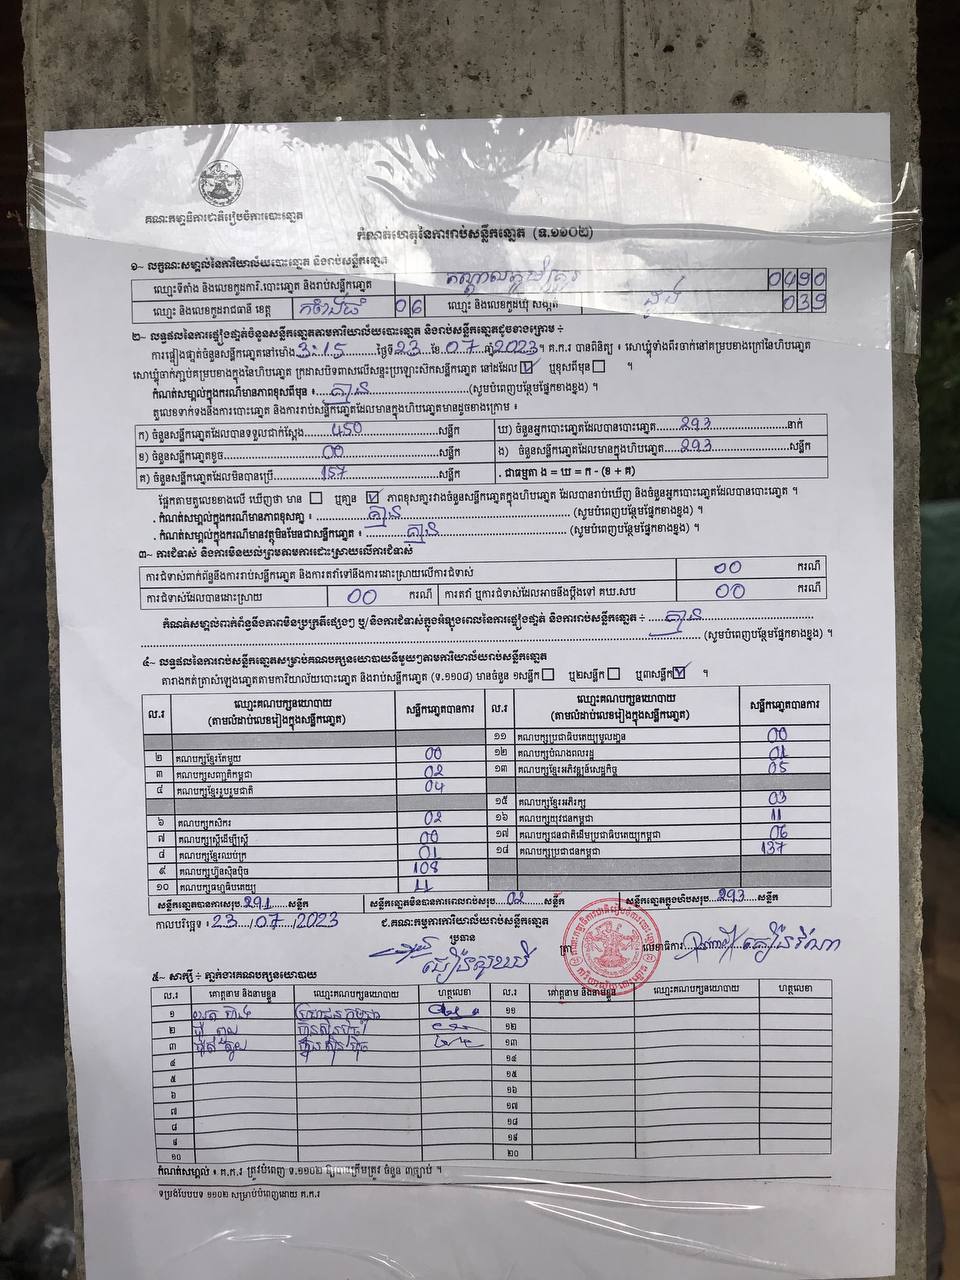 គណៈកម្មាធិការជាតិរៀបចំការបោះឆ្នោត
កំណត់ហេតុនៃការរាប់សន្លឹកឆ្នោត (ទ.១១០២)
១~ លក្ខណៈសម្គាល់នៃការិយាល័យបោះឆ្នោត និងរាប់សន្លឹកឆ្នោត
ឈ្មោះទីតាំង និងលេខកូដការិ.បោះឆ្នោត និងរាប់សន្លឹកឆ្នោត 0490
ឈ្មោះ និងលេខកូដរាជធានី ខេត្ត កំពង់ធំ 06 ឈ្មោះ និងលេខកូដឃុំ សង្កាត់ 039
២~ លទ្ធផលនៃការផ្ទៀងផ្ទាត់ចំនួនសន្លឹកឆ្នោតតាមការិយាល័យបោះឆ្នោត និងរាប់សន្លឹកឆ្នោតដូចខាងក្រោម ÷
ការផ្ទៀងផ្ទាត់ចំនួនសន្លឹកឆ្នោតនៅម៉ោង 3:15 ថ្ងៃទី 23 ខែ 07 ឆ្នាំ 2023។ គ.ក.រ បានពិនិត្យ ៖ សោឃ្លុំទាំងពីរចាក់នៅគម្របខាងក្រៅនៃហិបឆ្នោត
សោឃ្លុំចាក់ភ្ជាប់គម្របខាងក្នុងនៃហិបឆ្នោត ក្រដាសបិទពាសលើសន្ទះប្រឡោះសឹកសន្លឹកឆ្នោត នៅដដែល ☑ ឬខុសពីមុន ☐ ។
កំណត់សម្គាល់ក្នុងករណីមានភាពខុសពីមុន ៖ គ្មាន (សូមបំពេញបន្ថែមផ្នែកខាងខ្នង) ។
តួលេខទាក់ទងនឹងការបោះឆ្នោត និងការរាប់សន្លឹកឆ្នោតដែលមានក្នុងហិបឆ្នោតមានដូចខាងក្រោម ៖
ក) ចំនួនសន្លឹកឆ្នោតដែលបានទទួលជាក់ស្តែង 450 សន្លឹក ឃ) ចំនួនអ្នកបោះឆ្នោតដែលបានបោះឆ្នោត 293 នាក់
ខ) ចំនួនសន្លឹកឆ្នោតខូច 00 សន្លឹក ង) ចំនួនសន្លឹកឆ្នោតដែលមានក្នុងហិបឆ្នោត 293 សន្លឹក
គ) ចំនួនសន្លឹកឆ្នោតដែលមិនបានប្រើ 157 សន្លឹក . ជាធម្មតា ង = ឃ = ក - (ខ + គ)
ផ្អែកតាមតួលេខខាងលើ ឃើញថា មាន ☐ ឬគ្មាន ☑ ភាពខុសគ្នារវាងចំនួនសន្លឹកឆ្នោតក្នុងហិបឆ្នោត ដែលបានរាប់ឃើញ និងចំនួនអ្នកបោះឆ្នោតដែលបានបោះឆ្នោត ។
. កំណត់សម្គាល់ក្នុងករណីមានភាពខុសគ្នា ៖ គ្មាន (សូមបំពេញបន្ថែមផ្នែកខាងខ្នង) ។
. កំណត់សម្គាល់ក្នុងករណីមានវត្ថុមិនមែនជាសន្លឹកឆ្នោត ៖ គ្មាន (សូមបំពេញបន្ថែមផ្នែកខាងខ្នង) ។
៣~ ការជំទាស់ និងការមិនយល់ព្រមតាមការដោះស្រាយលើការជំទាស់
ការជំទាស់ពាក់ព័ន្ធនឹងការរាប់សន្លឹកឆ្នោត និងការតវ៉ាទៅនឹងការដោះស្រាយលើការជំទាស់ 00 ករណី
ការជំទាស់ដែលបានដោះស្រាយ 00 ករណី ការតវ៉ា ឬការជំទាស់ដែលអាចនឹងប្តឹងទៅ គឃ.សប 00 ករណី
កំណត់សម្គាល់ពាក់ព័ន្ធនឹងភាពមិនប្រក្រតីផ្សេងៗ ឬ/និងការជំទាស់ក្នុងអំឡុងពេលនៃការផ្ទៀងផ្ទាត់ និងការរាប់សន្លឹកឆ្នោត ÷ គ្មាន
(សូមបំពេញបន្ថែមផ្នែកខាងខ្នង) ។
៤~ លទ្ធផលនៃការរាប់សន្លឹកឆ្នោតសម្រាប់គណបក្សនយោបាយនីមួយៗតាមការិយាល័យរាប់សន្លឹកឆ្នោត
តារាងកត់ត្រាសំឡេងឆ្នោតតាមការិយាល័យបោះឆ្នោត និងរាប់សន្លឹកឆ្នោត (ទ.១១០៨) មានចំនួន ១សន្លឹក ☐ ឬ២សន្លឹក ☐ ឬ៣សន្លឹក ☑ ។
ល.រ ឈ្មោះគណបក្សនយោបាយ (តាមលំដាប់លេខរៀងក្នុងសន្លឹកឆ្នោត) សន្លឹកឆ្នោតបានការ ល.រ ឈ្មោះគណបក្សនយោបាយ (តាមលំដាប់លេខរៀងក្នុងសន្លឹកឆ្នោត) សន្លឹកឆ្នោតបានការ
១១ គណបក្សប្រជាធិបតេយ្យមូលដ្ឋាន 00
២ គណបក្សខ្មែរតែមួយ 00 ១២ គណបក្សបំណងពលរដ្ឋ 01
៣ គណបក្សសញ្ជាតិកម្ពុជា 02 ១៣ គណបក្សខ្មែរអភិវឌ្ឍន៍សេដ្ឋកិច្ច 05
៤ គណបក្សខ្មែររួបរួមជាតិ 04
១៥ គណបក្សខ្មែរអភិរក្ស 03
៦ គណបក្សកសិករ 02 ១៦ គណបក្សយុវជនកម្ពុជា 11
៧ គណបក្សស្ត្រីដើម្បីស្ត្រី 00 ១៧ គណបក្សជនជាតិដើមប្រជាធិបតេយ្យកម្ពុជា 06
៨ គណបក្សខ្មែរឈប់ក្រ 01 ១៨ គណបក្សប្រជាជនកម្ពុជា 137
៩ គណបក្សហ៊្វុនស៊ិនប៉ិច 108
១០ គណបក្សធម្មាធិបតេយ្យ 11
សន្លឹកឆ្នោតបានការសរុប 291 សន្លឹក សន្លឹកឆ្នោតមិនបានការពេលរាប់សរុប 02 សន្លឹក សន្លឹកឆ្នោតក្នុងហិបសរុប 293 សន្លឹក
កាលបរិច្ឆេទ ៖ 23/07/2023 ជ.គណៈកម្មការការិយាល័យរាប់សន្លឹកឆ្នោត
ប្រធាន ត្រា លេខាធិការ
៥~ សាក្សី ÷ ភ្នាក់ងារគណបក្សនយោបាយ
ល.រ គោត្តនាម និងនាមខ្លួន ឈ្មោះគណបក្សនយោបាយ ហត្ថលេខា ល.រ គោត្តនាម និងនាមខ្លួន ឈ្មោះគណបក្សនយោបាយ ហត្ថលេខា
១ ប្រជាជនកម្ពុជា ១១
២ ហ៊្វុនស៊ិនប៉ិច ១២
៣ ហ៊្វុនស៊ិនប៉ិច ១៣
៤ ១៤
៥ ១៥
៦ ១៦
៧ ១៧
៨ ១៨
៩ ១៩
១០ ២០
កំណត់សម្គាល់ ៖ គ.ក.រ ត្រូវបំពេញ ទ.១១០២ ឱ្យបានត្រឹមត្រូវ ចំនួន ៣ច្បាប់ ។
ទម្រង់បែបបទ ១១០២ សម្រាប់បំពេញដោយ គ.ក.រ